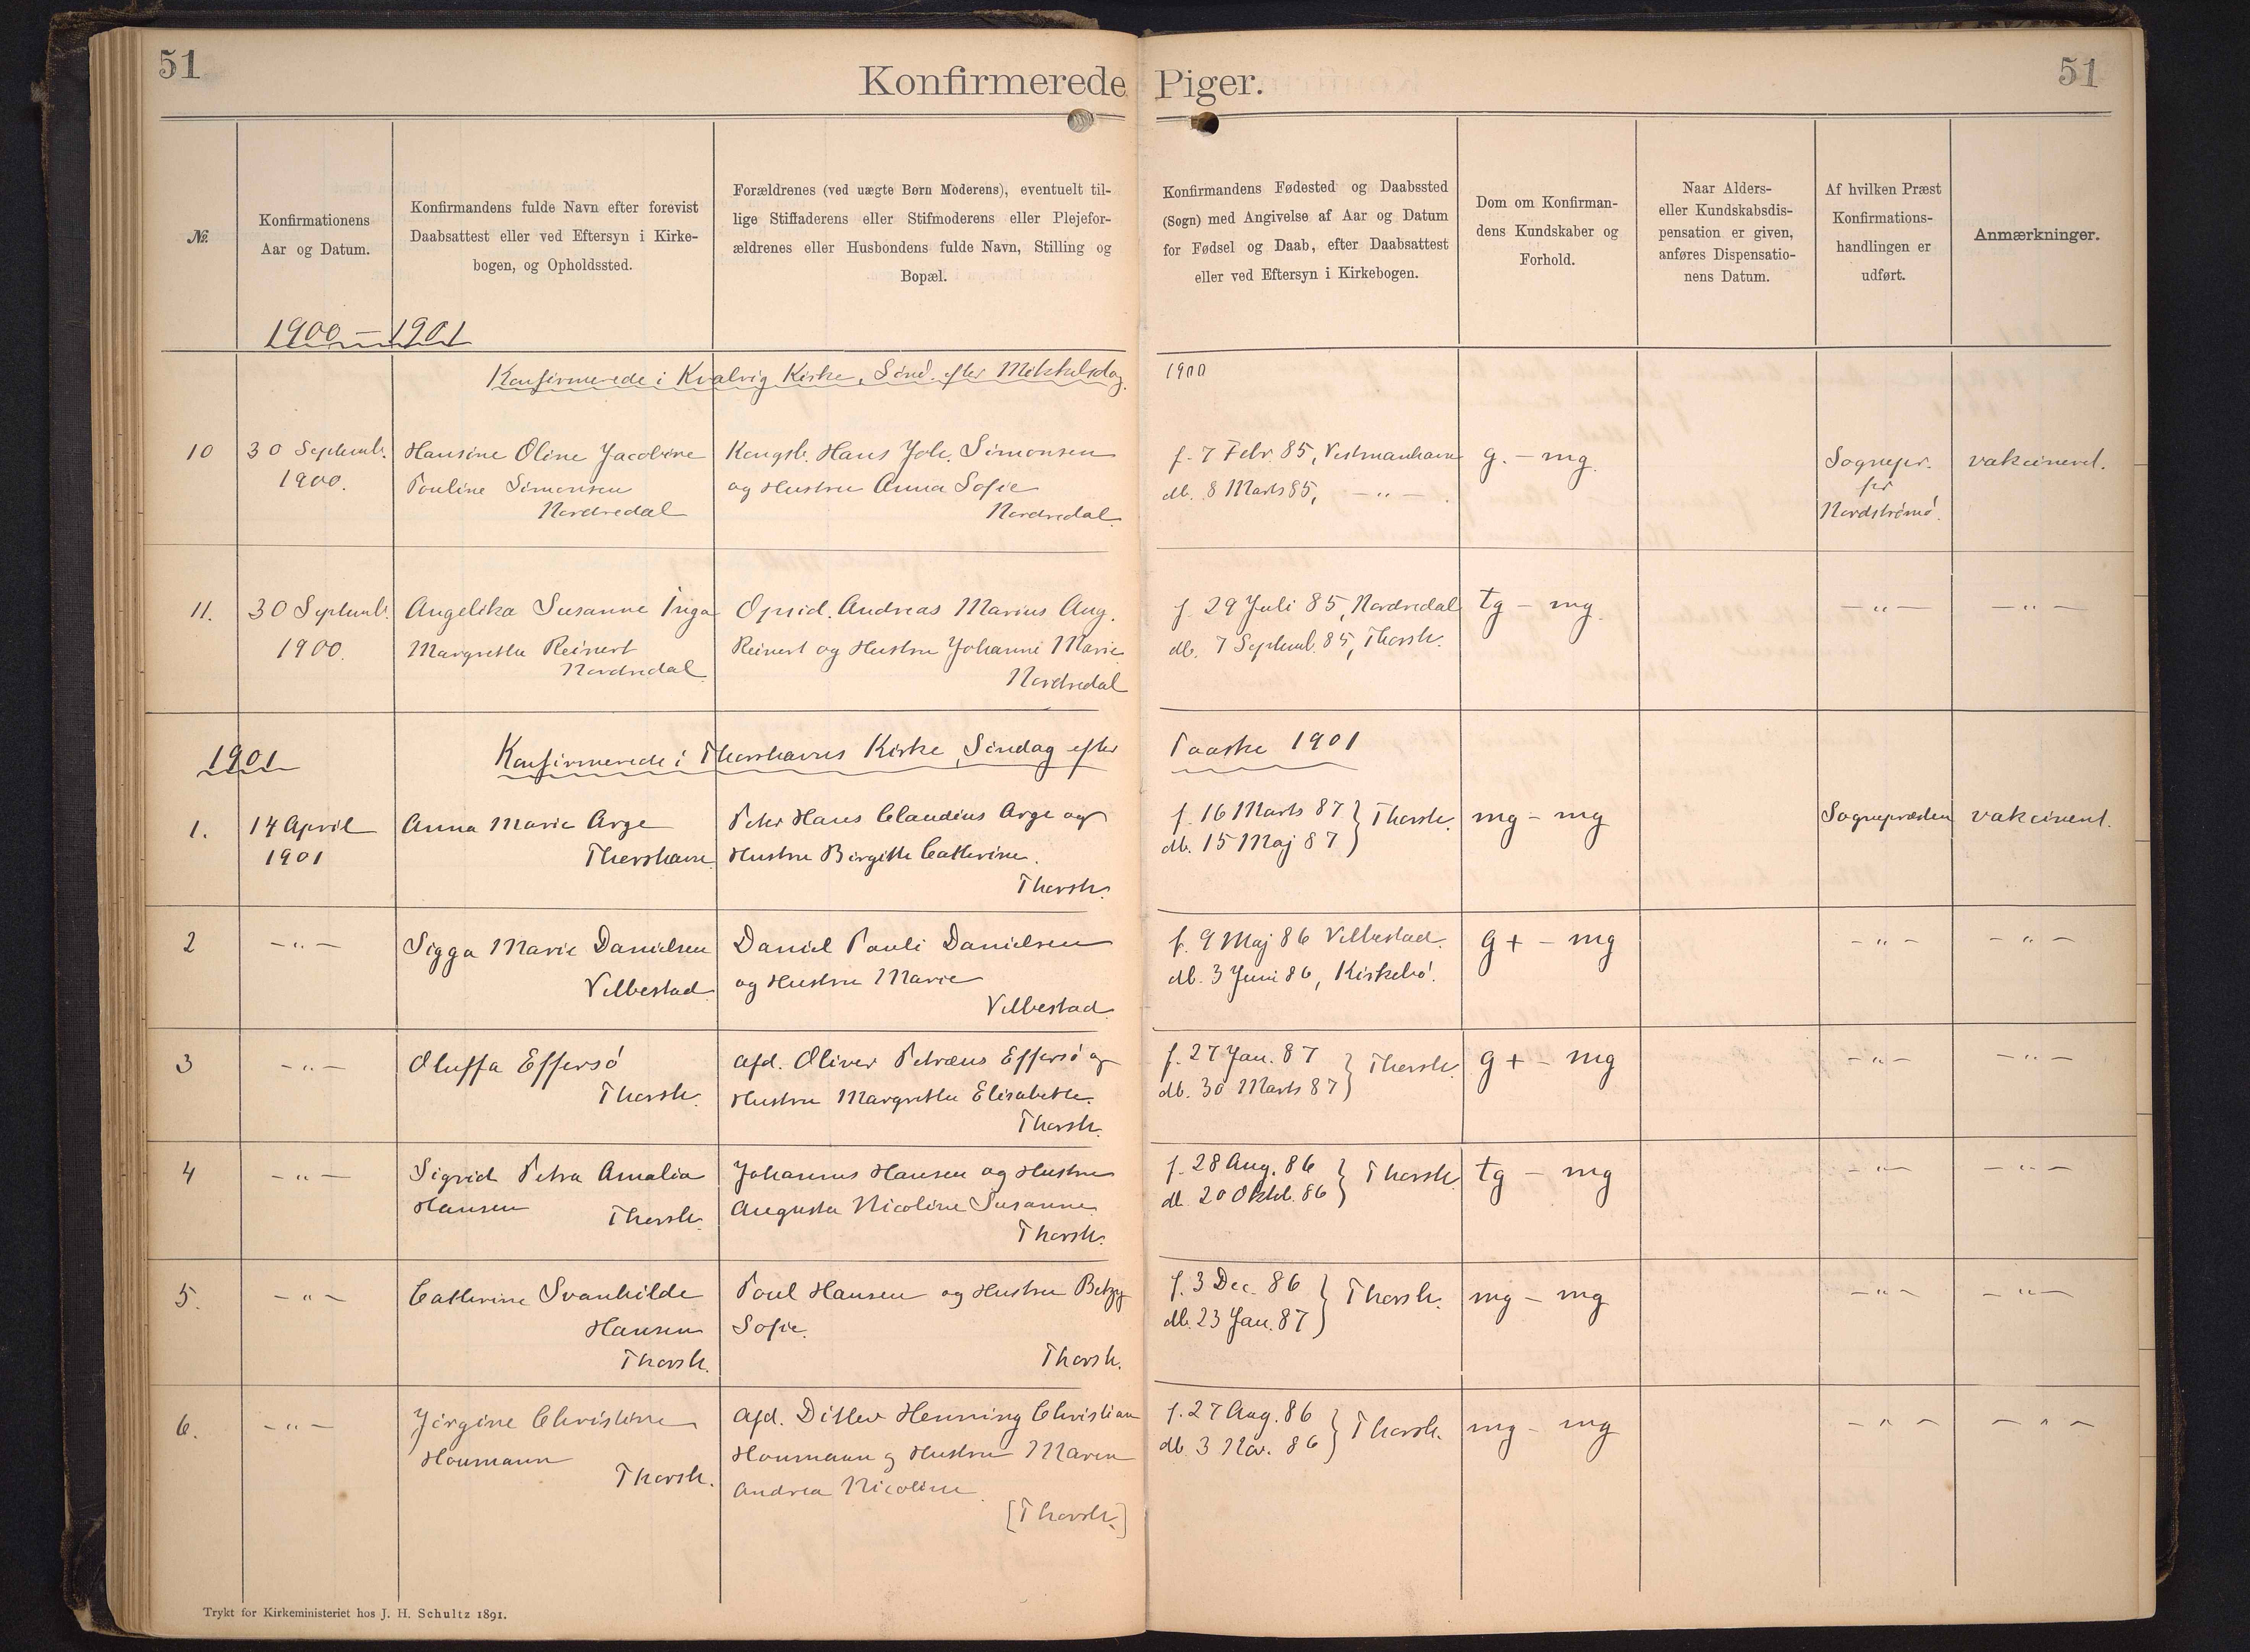 51
Konfirmerede Piger.
51
№.
Konfirmationens
Aar og Datum.
Konfirmandens fulde Navn efter forevist
Daabsattest eller ved Eftersyn i Kirke-
bogen, og Opholdssted.
Forældrenes (ved uægte Børn Moderens), eventuelt til-
lige Stiffaderens eller Stifmoderens eller Plejefor-
ældrenes eller Husbondens fulde Navn, Stilling og
Bopæl.
Konfirmandens Fødested og Daabssted
(Sogn) med Angivelse af Aar og Datum
for Fødsel og Daab, efter Daabsattest
eller ved Eftersyn i Kirkebogen.
Dom om Konfirman-
dens Kundskaber og
Forhold.
Naar Alders-
eller Kundskabsdis-
pensation er given,
anføres Dispensatio-
nens Datum.
Af hvilken Præst
Konfirmations-
handlingen er
udført.
Anmærkninger.
1900 - 1901
Konfirmerede i Kvalvig Kirke, Sönd. efter Mikkelsdag. 1900
10
30 Septemb.
1900.
Hansine Oline Jacobine
Pouline Simonsen
Nordredal
Kongsb. Hans Joh. Simonsen
og Hustru Anna Sofie
Nordredal.
f. 7 Febr. 85, Vestmanhavn
db. 8 Marts 85, - " - .
g. - mg.
Sognepr.
for
Nordströmö.
vakcineret.
11.
30 Septemb.
1900.
Angelika Susanne Inga
Margrethe Reinert
Nordredal.
Opsid. Andreas Marius Aug.
Reinert og Hustru Johanne Marie
Nordredal
f. 29 Juli 85, Nordredal
db. 7 Septemb. 85, Thorsh.
tg - mg.
- " -
- " -
1901
Konfirmerede i Thorshavns Kirke, Söndag efter Paaske 1901
1.
14 April
1901
Anna Marie Arge
Thorshavn
Peter Hans Claudius Arge og
Hustru Birgitte Cathrine.
Thorsh.
f. 16 Marts 87
db. 15 Maj 87
} Thorsh.
mg - mg
Sognepræsten
vakcineret.
2
- " -
Sigga Marie Danielsen
Velbestad.
Daniel Pauli Danielsen
og Hustru Marie
Velbestad.
f. 9 Maj 86 Velbestad.
db. 3 Juni 86, Kirkebö.
g + - mg
- " -
- " -
3
- " -
Oluffa Effersö
Thorsh.
Afd. Oliver Petræus Effersö og
Hustru Margrethe Elisabeth.
Thorsh.
f. 27 Jan. 87
db. 30 Marts 87
} Thorsh.
g + - mg
- " -
- " -
4
- " -
Sigrid Petra Amalia
Hansen
Thorsh.
Johannes Hansen og Hustru
Augusta Nicoline Susanne
Thorsh.
f. 28 Aug. 86
db. 20 Oktob. 86
} Thorsh.
tg - mg
- " -
- " -
5.
- " -
Cathrine Svanhilde
Hansen
Thorsh.
Poul Hansen og Hustru Betzy
Sofie.
Thorsh.
f. 3 Dec. 86
db. 23 Jan. 87
} Thorsh.
mg - mg
- " -
- " -
6.
- " -
Jörgine Christine
Houmann
Thorsh.
Afd. Ditlev Henning Christian
Houmann og Hustru Maren
Andrea Nicoline.
[Thorsh.]
f. 27 Aug. 86
db. 3 Nov. 86
} Thorsh.
mg - mg
- " -
- " -
Trykt for Kirkeministeriet hos J. H. Schultz 1891.